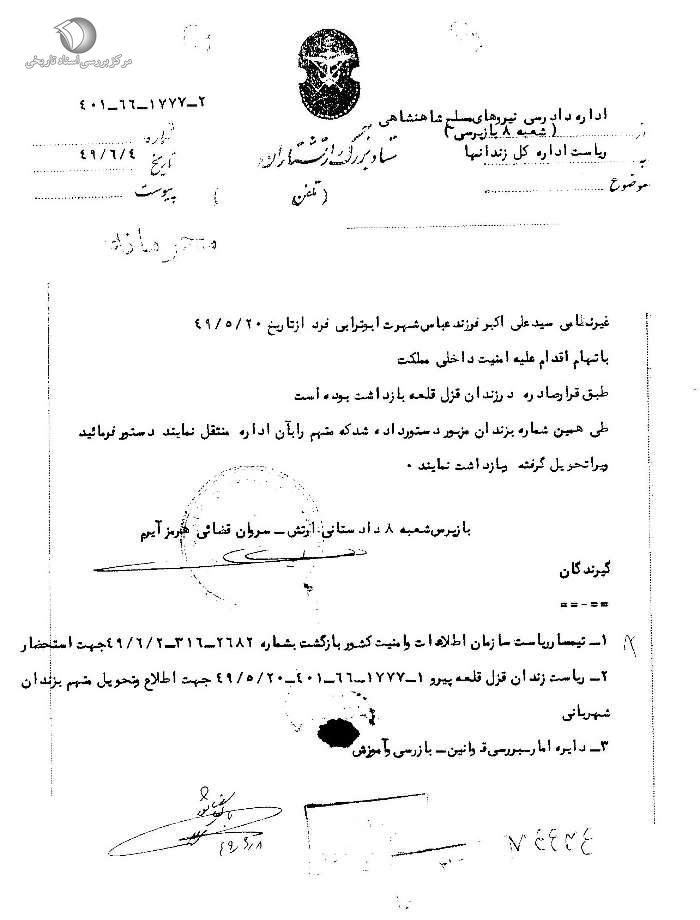 مرکز بررسی اسناد تاریخی
۴۰۱ــ۶۶ــ۱۷۷۷ــ۲
شماره
تاریخ ۴۹/۶/۴
پیوست
از اداره دادرسی نیروهای مسلح شاهنشاهی
( شعبه ۸ بازپرسی )
به ریاست اداره کل زندانها
موضوع
ستاد بزرگ ارتشتاران
( تلفن )
محرمانه
غیرنظامی سید علی اکبر فرزند عباس شهرت ابوترابی فرد از تاریخ ۴۹/۵/۲۰
باتهام اقدام علیه امنیت داخلی مملکت
طبق قرار صادره در زندان قزل قلعه بازداشت بوده است
طی همین شماره بزندان مزبور دستور داده شد که متهم را بآن اداره منتقل نمایند دستور فرمائید
ویرا تحویل گرفته و بازداشت نمایند ۰
بازپرس شعبه ۸ دادستانی ارتش ــ سروان قضائی هرمز آیرم
گیرندگان
==-==
۱ــ تیمسار ریاست سازمان اطلاعات وامنیت کشور بازگشت بشماره ۲۶۸۲ــ۳۱۶ــ۴۹/۶/۲ جهت استحضار
۲ــ ریاست زندان قزل قلعه پیرو ۱ــ۱۷۷۷ــ۶۶ــ۴۰۱ــ۴۹/۵/۲۰ جهت اطلاع وتحویل متهم بزندان
شهربانی
۳ــ دایره آمار ــ بررسی قوانین ــ بازرسی وآموزش